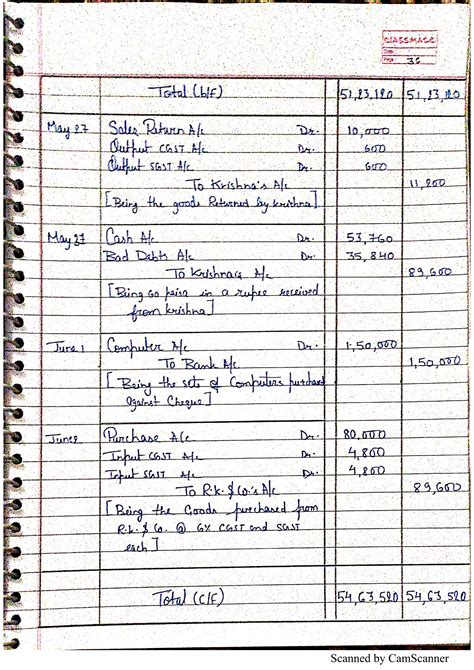 classmate
Date
Page 36
Total (b/f) 51,23,120 51,23,120
May 27 Sales Return A/c Dr. 10,000
Output CGST A/c Dr. 600
Output SGST A/c Dr. 600
To Krishna's A/c 11,200
[Being the goods Returned by krishna]
May 27 Cash A/c Dr. 53,760
Bad Debts A/c Dr. 35,840
To Krishna's A/c 89,600
[Being 60 paisa in a rupee received
from krishna]
June 1 Computer A/c Dr. 1,50,000
To Bank A/c 1,50,000
[Being the sets of Computers purchased
against Cheque]
June 2 Purchase A/c Dr. 80,000
Input CGST A/c Dr. 4,800
Input SGST A/c Dr. 4,800
To R.k. & Co.'s A/c 89,600
[Being the Goods purchased from
R.k. & Co. @ 6% CGST and SGST
each]
Total (C/F) 54,63,520 54,63,520
Scanned by CamScanner